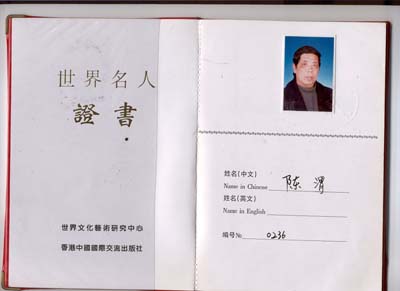 世界名人
證書
世界文化藝術研究中心
香港中國國際交流出版社
姓名(中文)
Name in Chinese 陈渭
姓名(英文)
Name in English
编号№ 0236